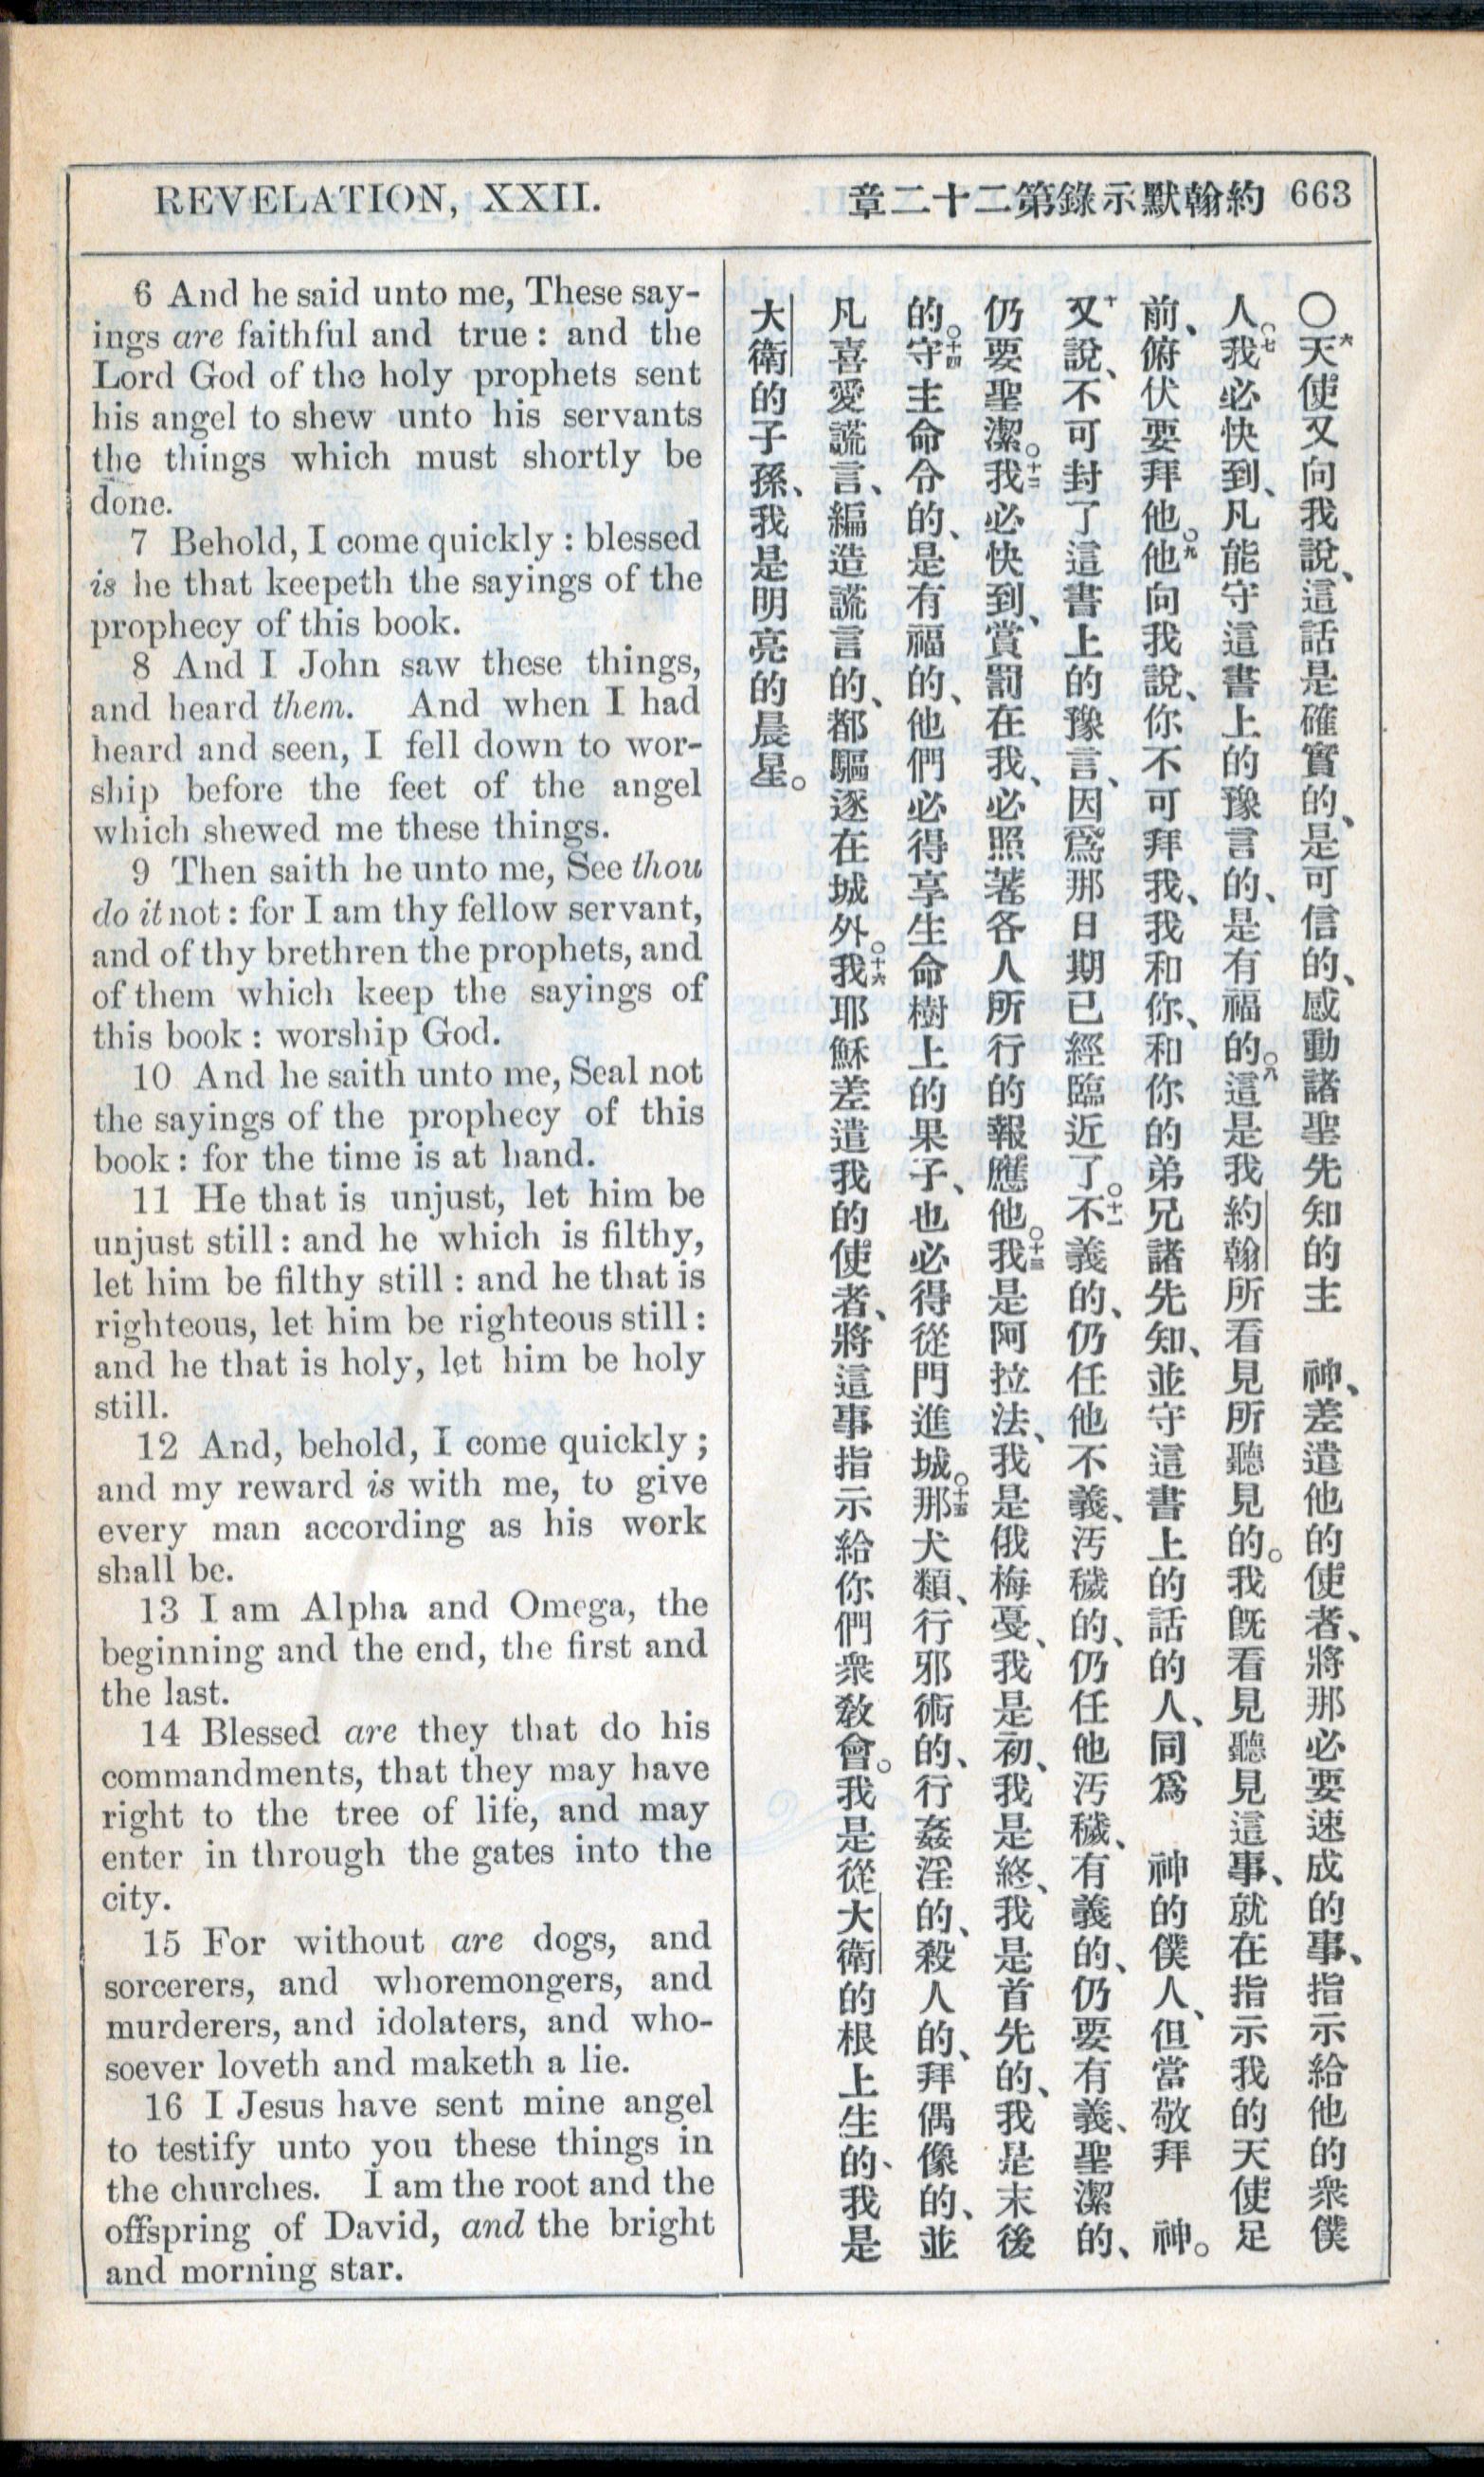 REVELATION, XXII.
章二十二第錄示默翰約 663
6 And he said unto me, These say-
ings are faithful and true: and the
Lord God of the holy prophets sent
his angel to shew unto his servants
the things which must shortly be
done.
7 Behold, I come quickly: blessed
is he that keepeth the sayings of the
prophecy of this book.
8 And I John saw these things,
and heard them. And when I had
heard and seen, I fell down to wor-
ship before the feet of the angel
which shewed me these things.
9 Then saith he unto me, See thou
do it not: for I am thy fellow servant,
and of thy brethren the prophets, and
of them which keep the sayings of
this book: worship God.
10 And he saith unto me, Seal not
the sayings of the prophecy of this
book: for the time is at hand.
11 He that is unjust, let him be
unjust still: and he which is filthy,
let him be filthy still: and he that is
righteous, let him be righteous still:
and he that is holy, let him be holy
still.
12 And, behold, I come quickly;
and my reward is with me, to give
every man according as his work
shall be.
13 I am Alpha and Omega, the
beginning and the end, the first and
the last.
14 Blessed are they that do his
commandments, that they may have
right to the tree of life, and may
enter in through the gates into the
city.
15 For without are dogs, and
sorcerers, and whoremongers, and
murderers, and idolaters, and who-
soever loveth and maketh a lie.
16 I Jesus have sent mine angel
to testify unto you these things in
the churches. I am the root and the
offspring of David, and the bright
and morning star.
〇六天使又向我說、這話是確實的、是可信的、感動諸聖先知的主 神、差遣他的使者、將那必要速成的事、指示給他的衆僕
人。七我必快到、凡能守這書上的豫言的、是有福的。八這是我約翰所看見所聽見的。我旣看見聽見這事、就在指示我的天使足
前、俯伏要拜他。九他向我說、你不可拜我、我和你、和你的弟兄諸先知、並守這書上的話的人、同爲 神的僕人、但當敬拜 神。
十又說、不可封了這書上的豫言、因爲那日期已經臨近了。十一不義的、仍任他不義、汚穢的、仍任他汚穢、有義的、仍要有義、聖潔的、
仍要聖潔。十二我必快到、賞罰在我、必照著各人所行的報應他。十三我是阿拉法、我是俄梅戞、我是初、我是終、我是首先的、我是末後
的。十四守主命令的、是有福的、他們必得享生命樹上的果子、也必得從門進城。十五那犬類、行邪術的、行姦淫的、殺人的、拜偶像的、並
凡喜愛謊言、編造謊言的、都驅逐在城外。十六我耶穌差遣我的使者、將這事指示給你們衆敎會。我是從大衛的根上生的、我是
大衛的子孫、我是明亮的晨星。